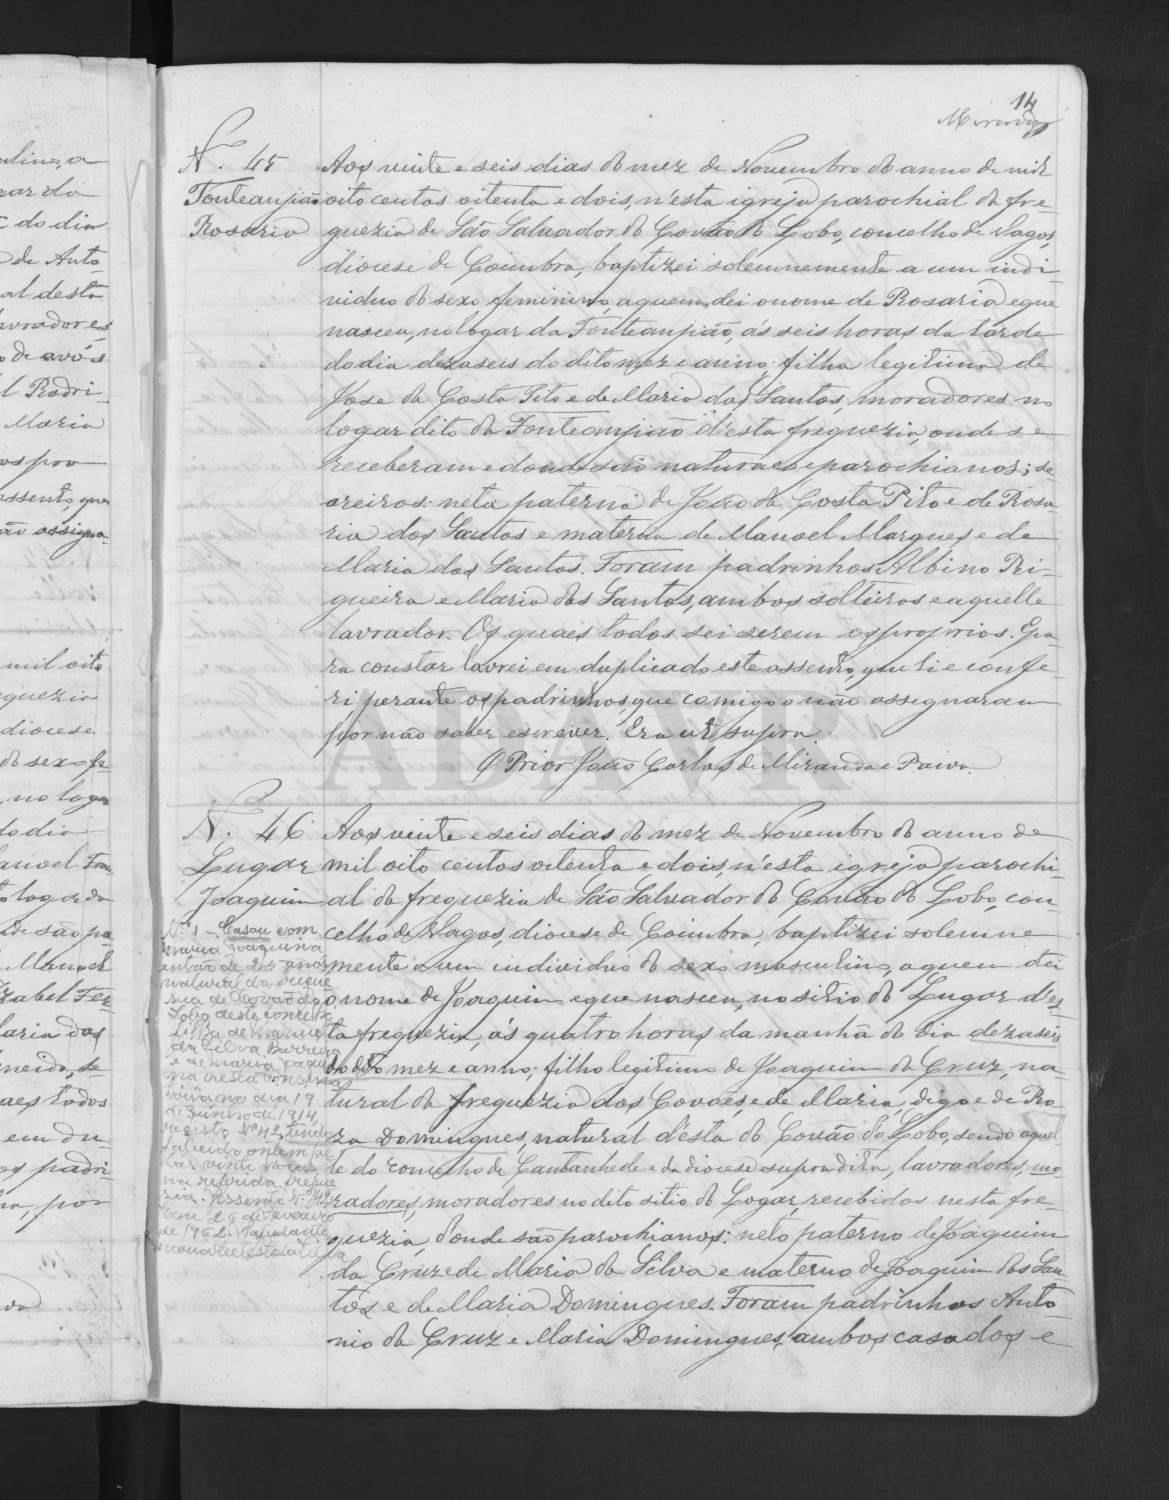 14
Miranda
N.º 45
Fonteanjião
Rosaria
Aos vinte e seis dias do mez de Novembro do anno de mil
oito centos oitenta e dois, n'esta igreja parochial da fre-
guezia de São Salvador do Covão do Lobo, concelho de Vagos,
diocese de Coimbra, baptizei solemnemente a um indi-
viduo do sexo feminino, a quem dei o nome de Rosaria e que
nasceu, no logar da Fonteanjião, ás seis horas da tarde
do dia dezaseis do dito mez e anno: filha legitima de
José da Costa Pito e de Maria dos Santos, moradores no
logar dito da Fonteanjião d'esta freguezia, onde se
receberam e donde são naturaes e parochianos; se-
areiros: neta paterna de João da Costa Pito e de Rosa-
ria dos Santos e materna de Manoel Marques e de
Maria dos Santos. Foram padrinhos Albino Ri-
gueira e Maria dos Santos, ambos solteiros e aquelle
lavrador. Os quaes todos sei serem os proprios. E pa-
ra constar lavrei em duplicado este assento, que li e confe-
ri perante os padrinhos, que comigo o não assegnaram
por não saber escrever. Era ut supra.
O Prior João Carlos de Miranda e Paiva.
N.º 46
Lugar
Joaquim
Aos vinte e seis dias do mez de Novembro do anno de
mil oito centos oitenta e dois, n'esta igreja parochi-
al da freguezia de São Salvador do Covão do Lobo, con-
celho de Vagos, diocese de Coimbra, baptizei solemne
mente a um individuo do sexo masculino, a quem dei
o nome de Joaquim e que nasceu, no sitio do Lugar d'es-
ta freguezia, ás quatro horas da manhã do dia dezaseis
do dito mez e anno; filho legitimo de Joaquim da Cruz, na-
tural da freguezia dos Covões, e de Maria, digo e de Ro-
za Domingues, natural d'esta do Covão do Lobo, sendo aquel
le do concelho de Cantanhede e da diocese supradita, lavradores, mo-
radores, moradores no dito sitio do Logar, recebidos nesta fre-
guezia, donde são parochianos: neto paterno de Joaquim
da Cruz e de Maria da Silva e materno de Joaquim dos San-
tos e de Maria Domingues. Foram padrinhos Anto-
nio da Cruz e Maria Domingues, ambos casados e
N.º 1 - Casou com
Maria Joaquina
então de 23 anos
natural da fregue
sia de Covão do
Lobo deste concelho
filha de Manuel
da Silva Barreiro
e de Maria Joaqui
na
no dia 19
de Junho de 1914,
registo N.º 42, tendo
falecido ontem pe
las vinte horas
na referida fregue
sia. Assento N.º
Em 26 de Fevereiro
de 1962. O ajudante
ADAVR